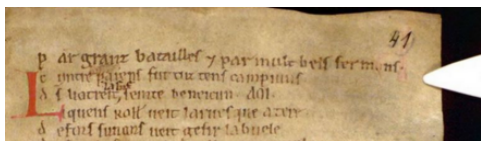 41
p ar granz batailles ⁊ par mult bels sermons
c untre paiens fut tuz tens campiuns
d s li otreit seinte beneicun. AOI
L i quens Roll ueit larcevesque a tere
d efors sun cors ueit gesir la buele